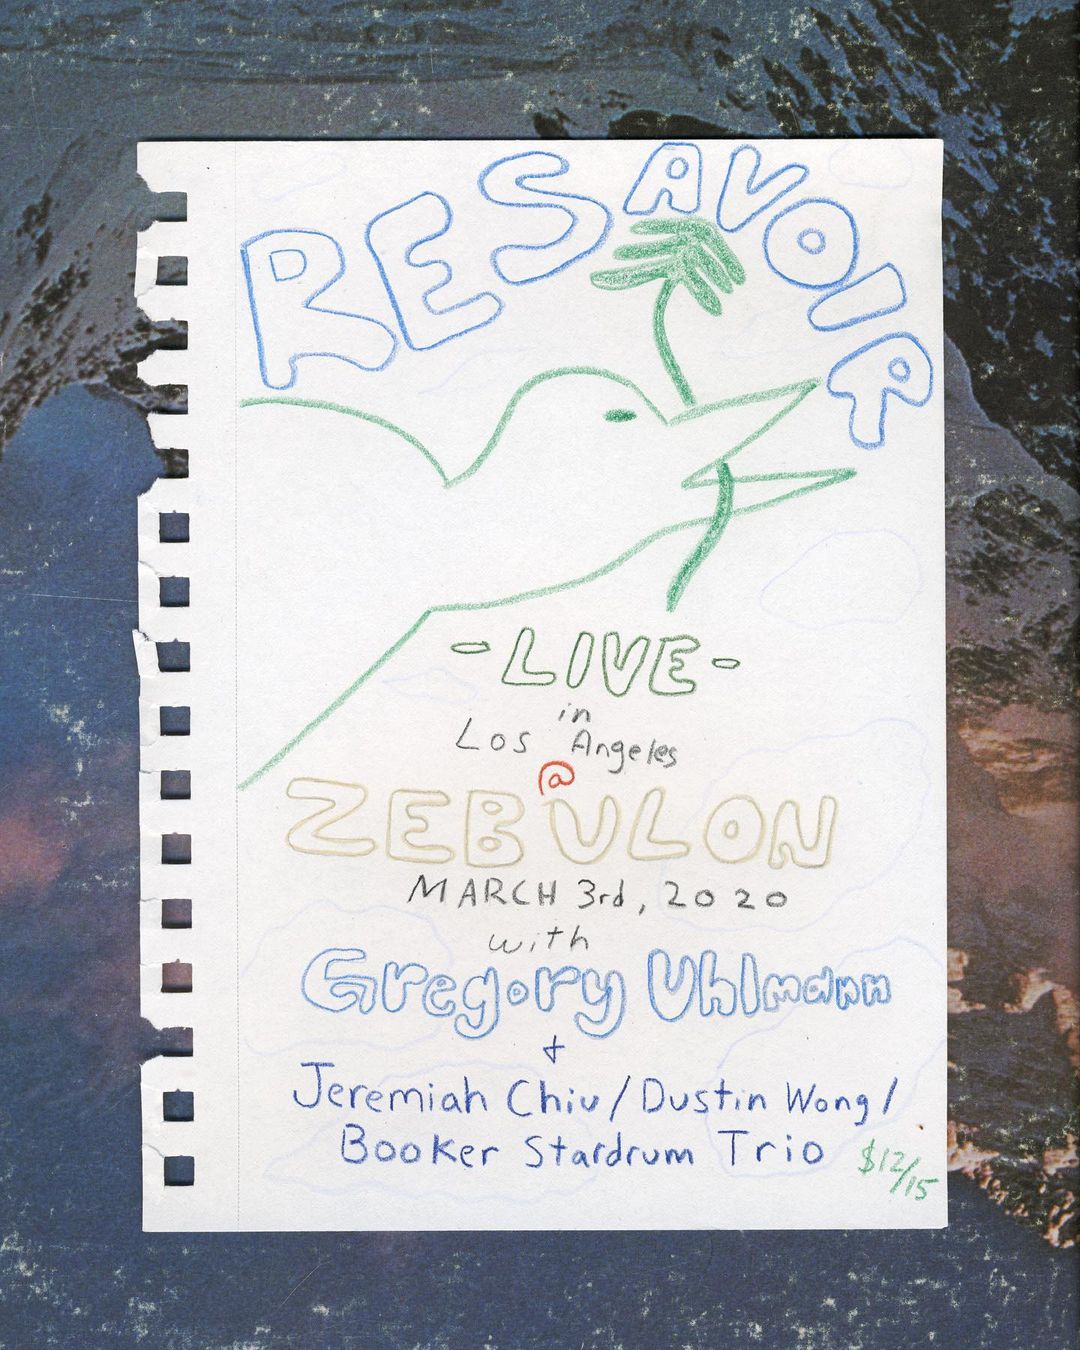 RESAVOIR
-LIVE-
in
Los Angeles
@
ZEBULON
MARCH 3rd, 2020
with
Gregory Uhlmann
+
Jeremiah Chiu/Dustin Wong/
Booker Stardrum Trio
$12/15